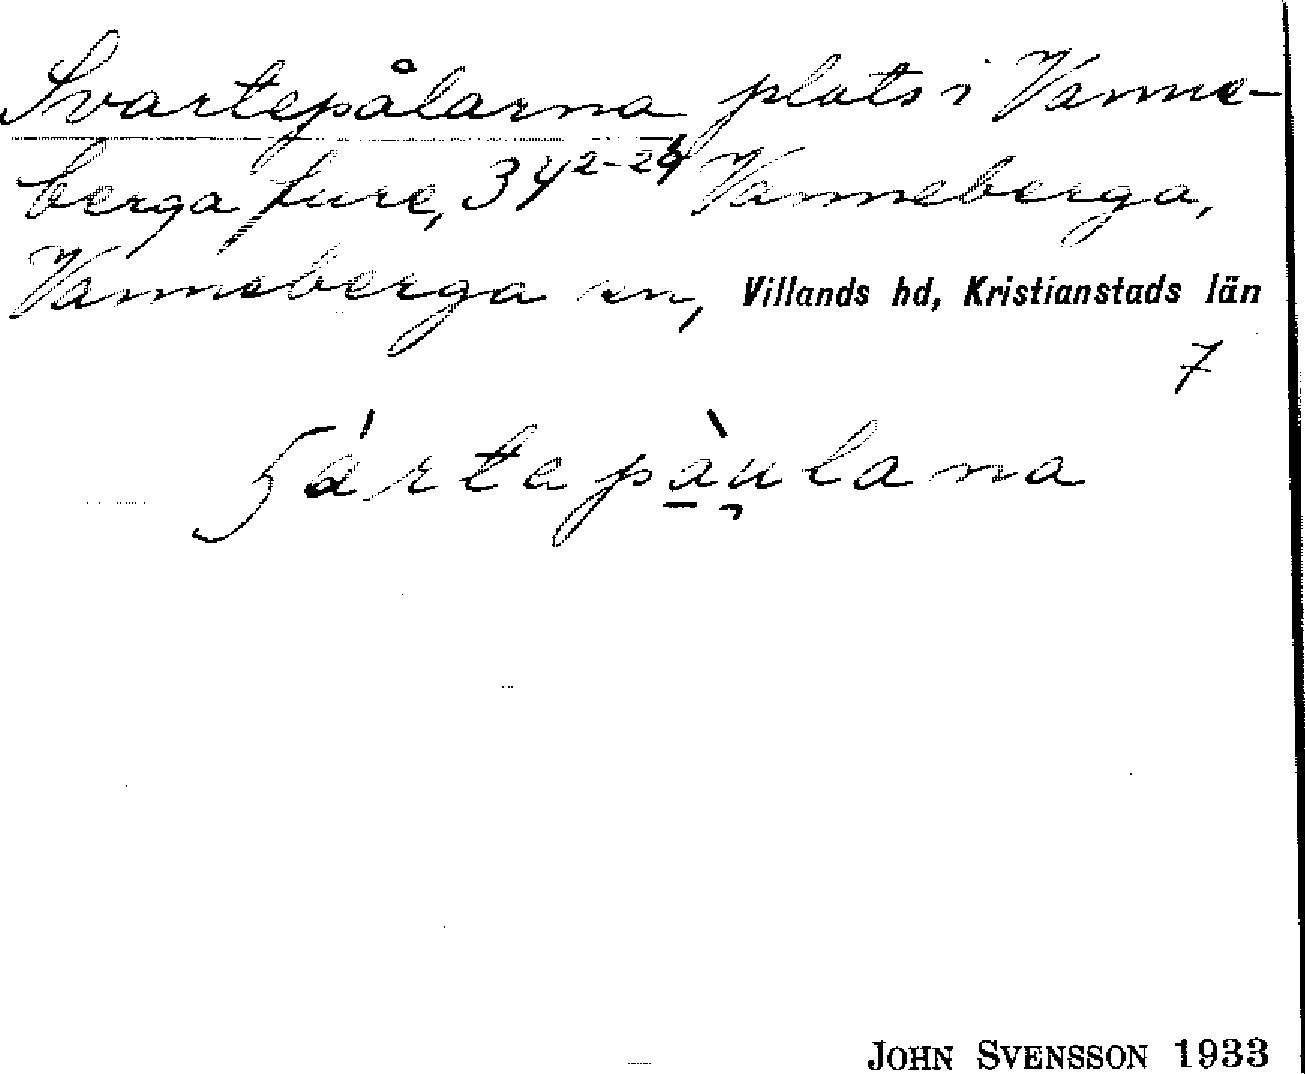 Svartepålarna plats i Vanne-
berga fure, 34²⁻²⁴ Vanneberga,
Vanneberga sn, Villands hd, Kristianstads län
7
sártapàu̯lana
JOHN SVENSSON 1933